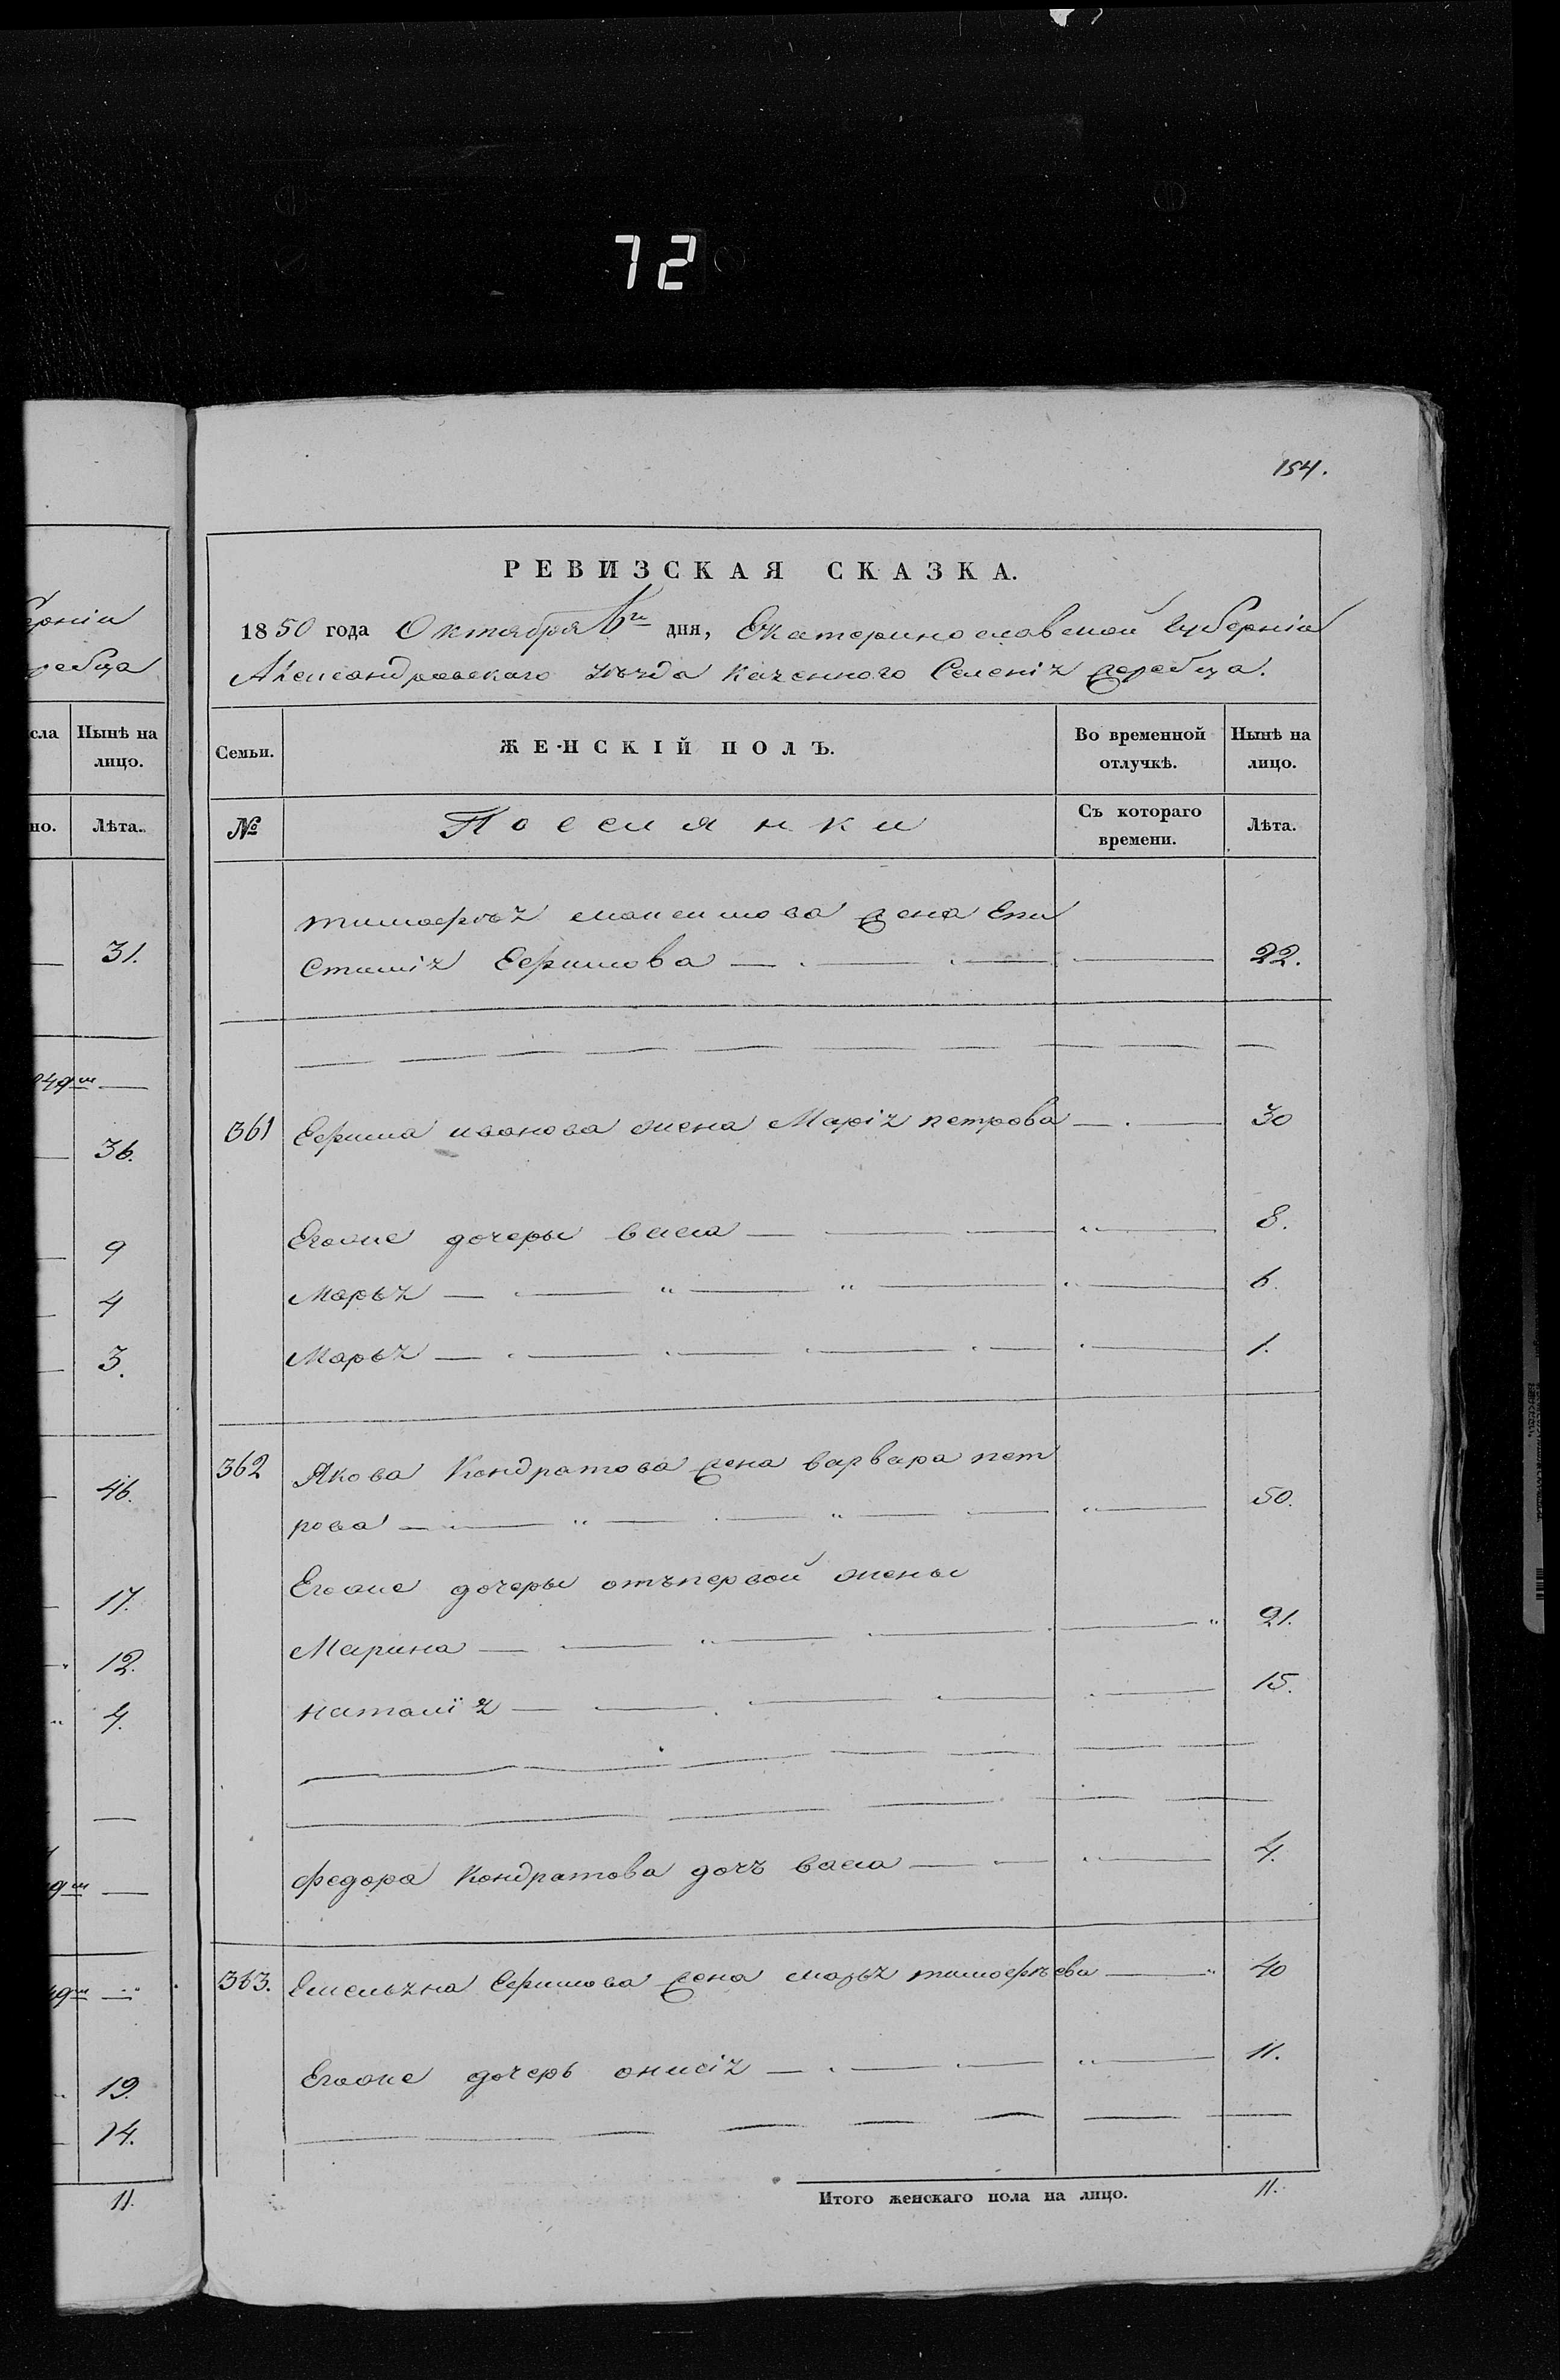 72
154.
РЕВИЗСКАЯ СКАЗКА.
1850 года Октября 6го дня, Екатеринославской губерніи
Александровскаго уѣзда Казенного Селенія Жеребца.
Семьи. ЖЕНСКІЙ ПОЛЪ. Во временной отлучкѣ. Нынѣ на лицо.
№ Поселянки Съ котораго времени. Лѣта.
тимофѣя максимова жена Епи
стимія Ефимова 22.
361 Ефима иванова жена Марія петрова 30
Егоже дочеры васса 8.
Марья 6.
Марья 1.
362 Якова Кондратова жена варвара пет
рова 50.
Егоже дочеры отъпервой жены
Марина 21.
наталія 15.
федора Кондратова дочъ васса 4.
363. Емельяна Ефимова жена марья тимофѣева 40
Егоже дочерь онисія 11.
Итого женскаго пола на лицо. 11.
ерніи
ребца
сла Нынѣ на лицо.
но. Лѣта.
31.
49го
36.
9
4
3.
46.
17.
12.
4.
9го
49го
19.
14.
11.